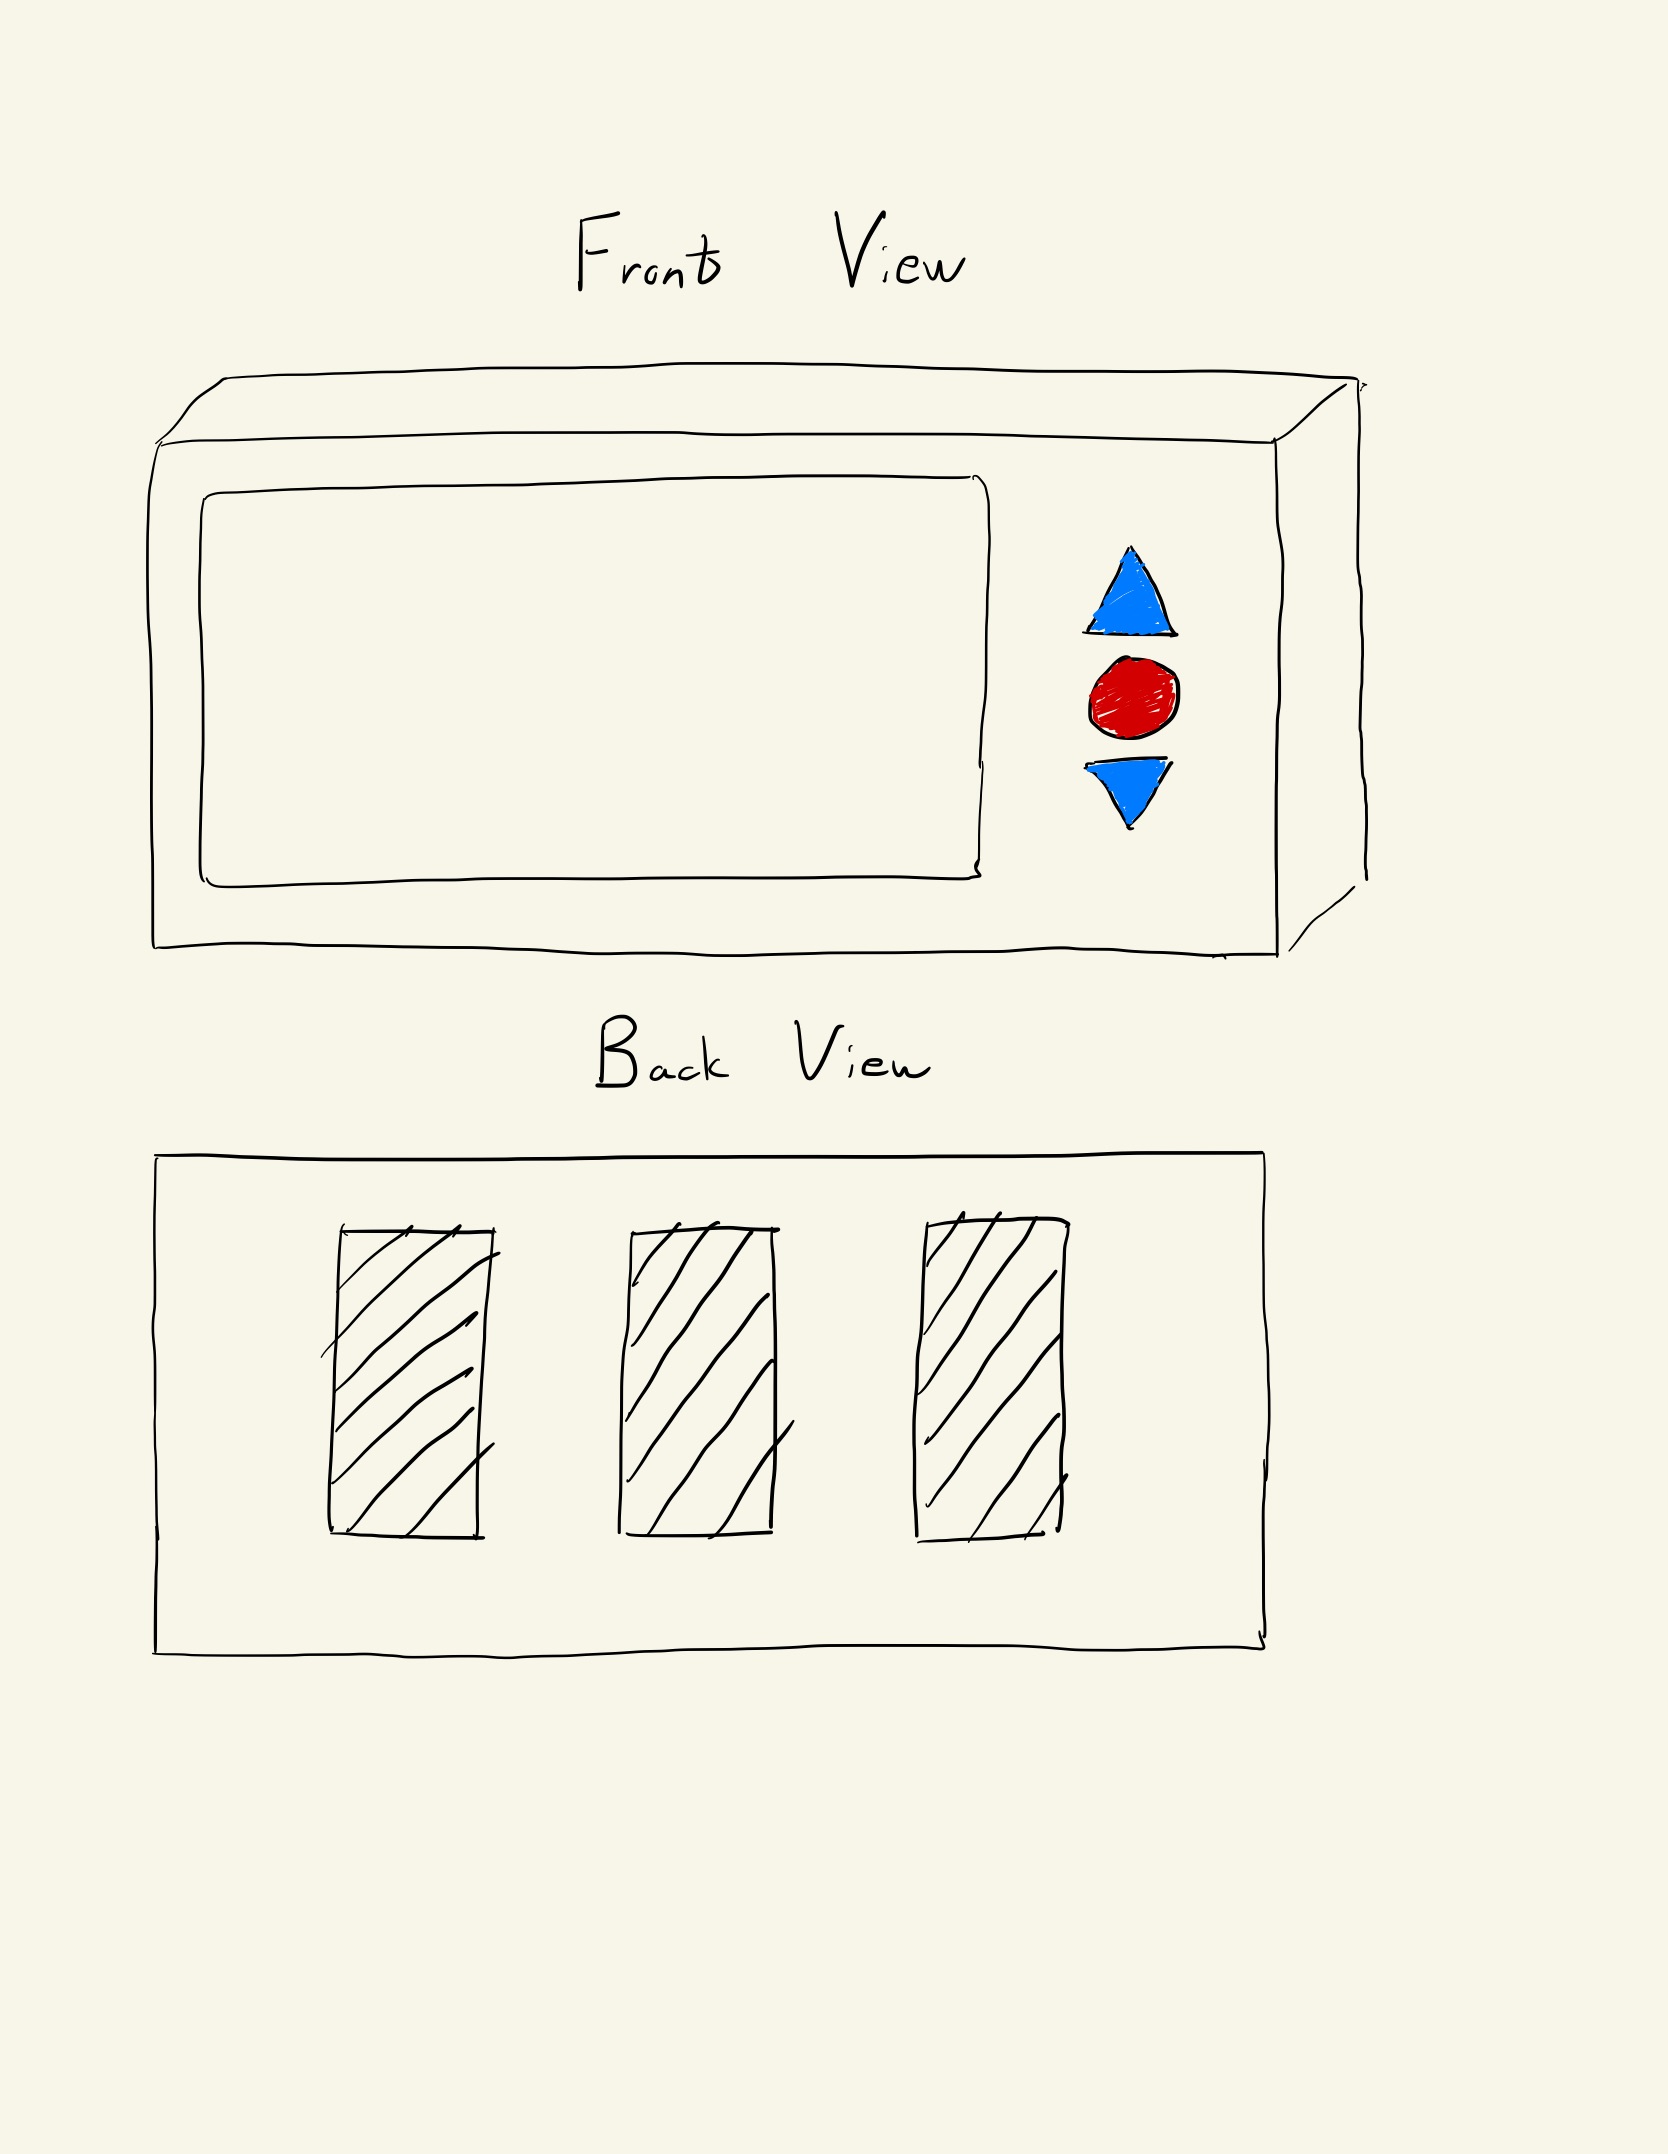 Front View
Back View